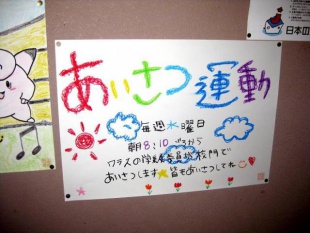 あいさつ運動
毎週水曜日
朝8:10ごろから
クラスの学級委員が校門で
あいさつします 皆もあいさつしてね
日本の